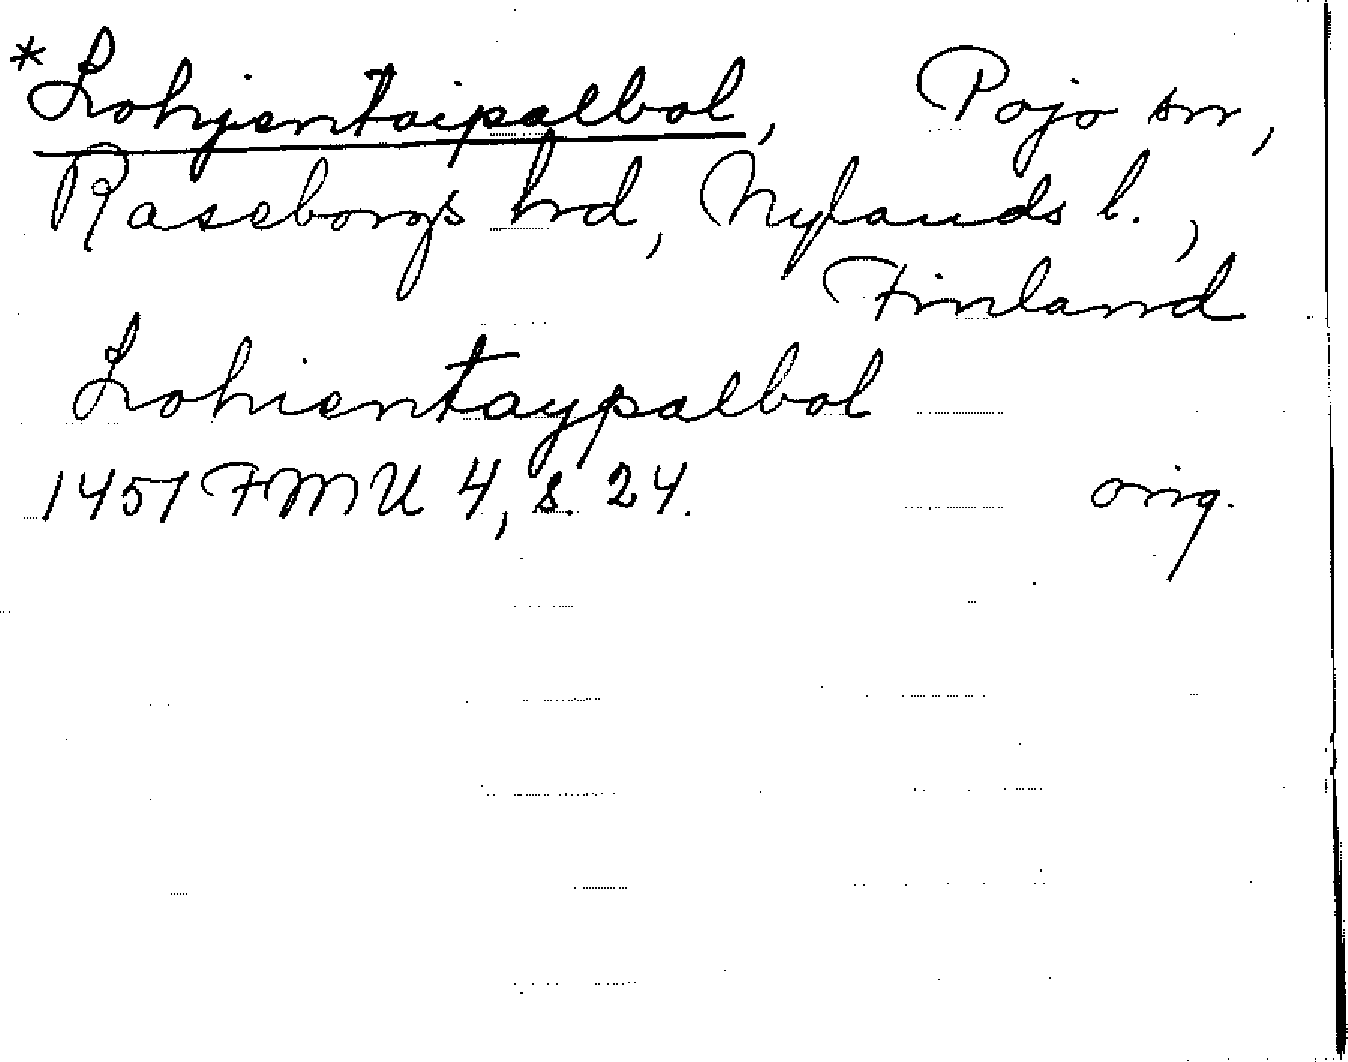 *Lohjentaipalbol, Pojo sn,
Raseborgs hrd, Nylands l.,
Finland
Lohientaypalbol
1451 FMU 4, s. 24. orig.